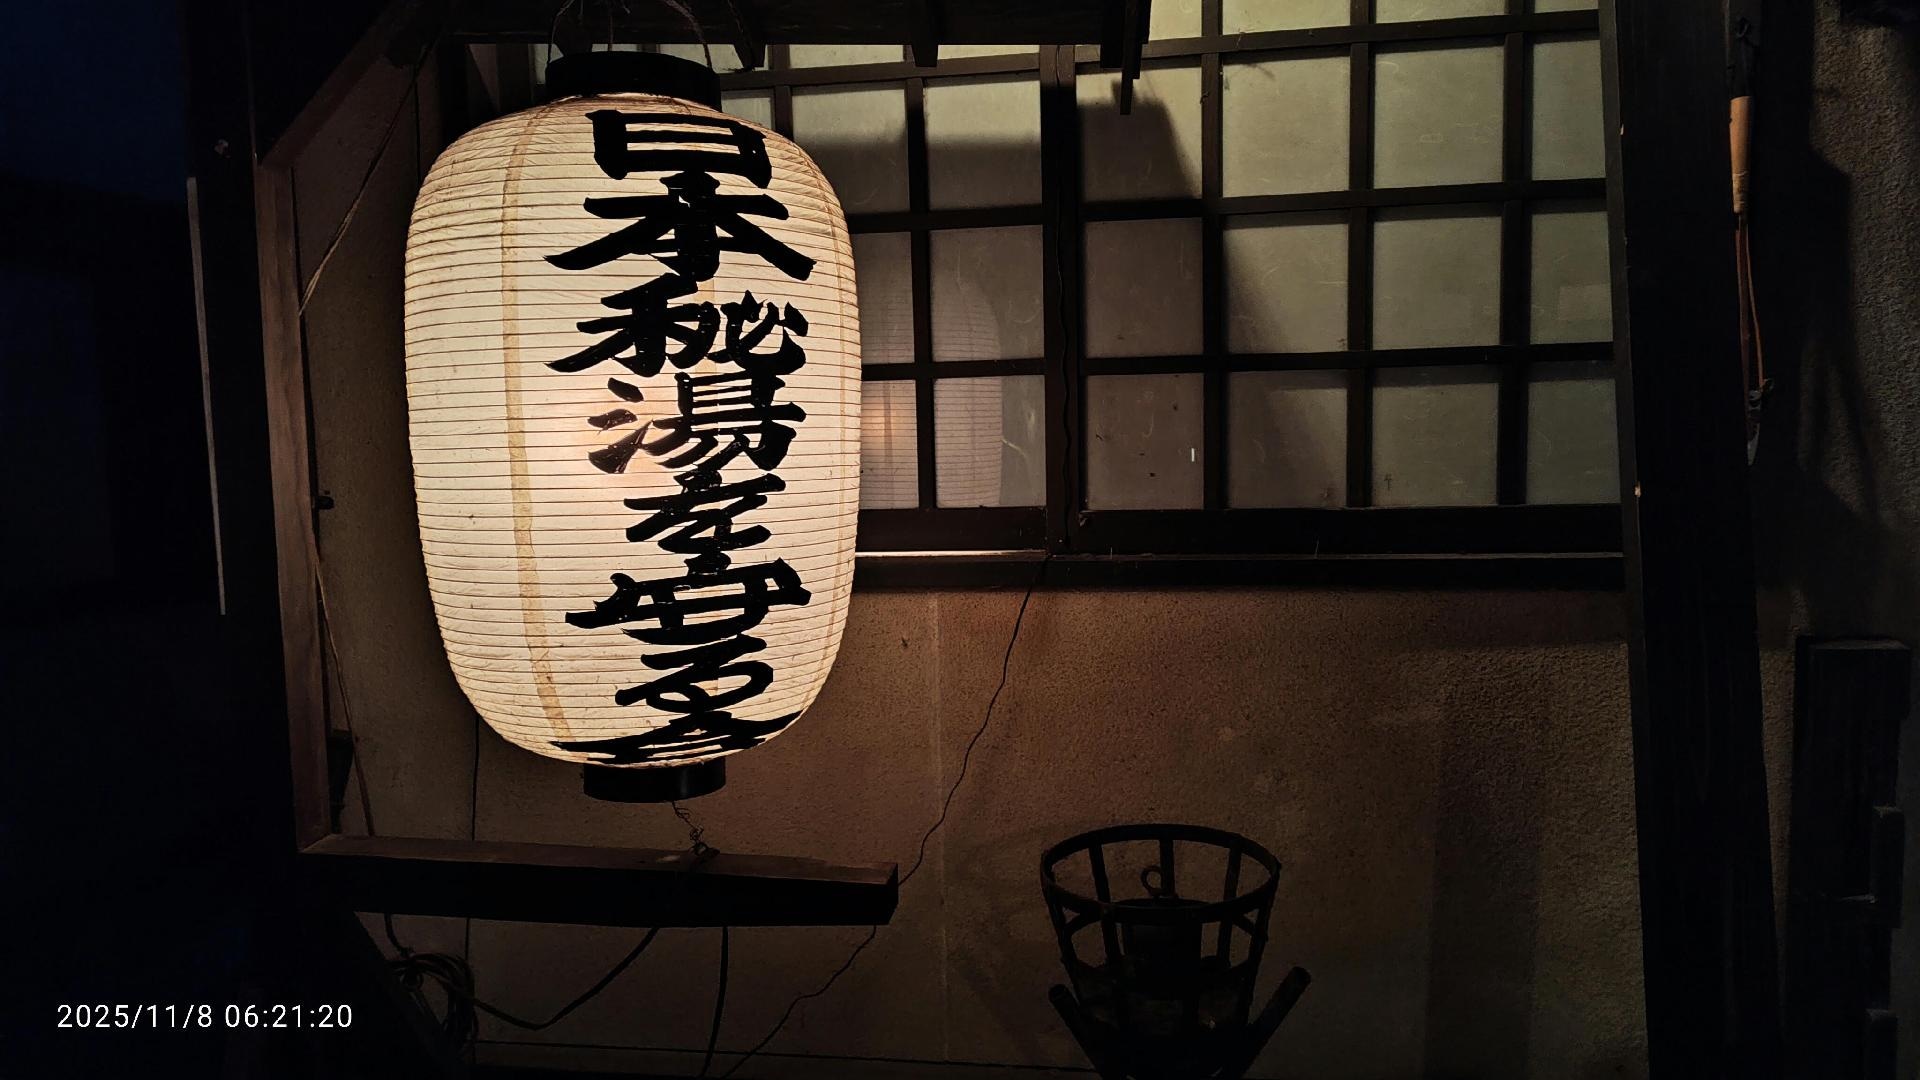 日本秘湯を守る会
2025/11/8 06:21:20